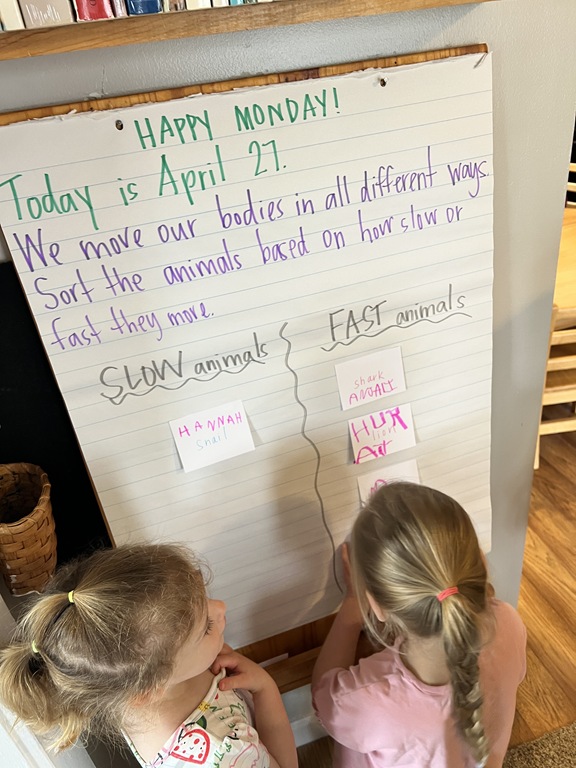 HAPPY MONDAY!
Today is April 27.
We move our bodies in all different ways.
Sort the animals based on how slow or
fast they move.
SLOW animals
FAST animals
HANNAH
snail
shark
lion